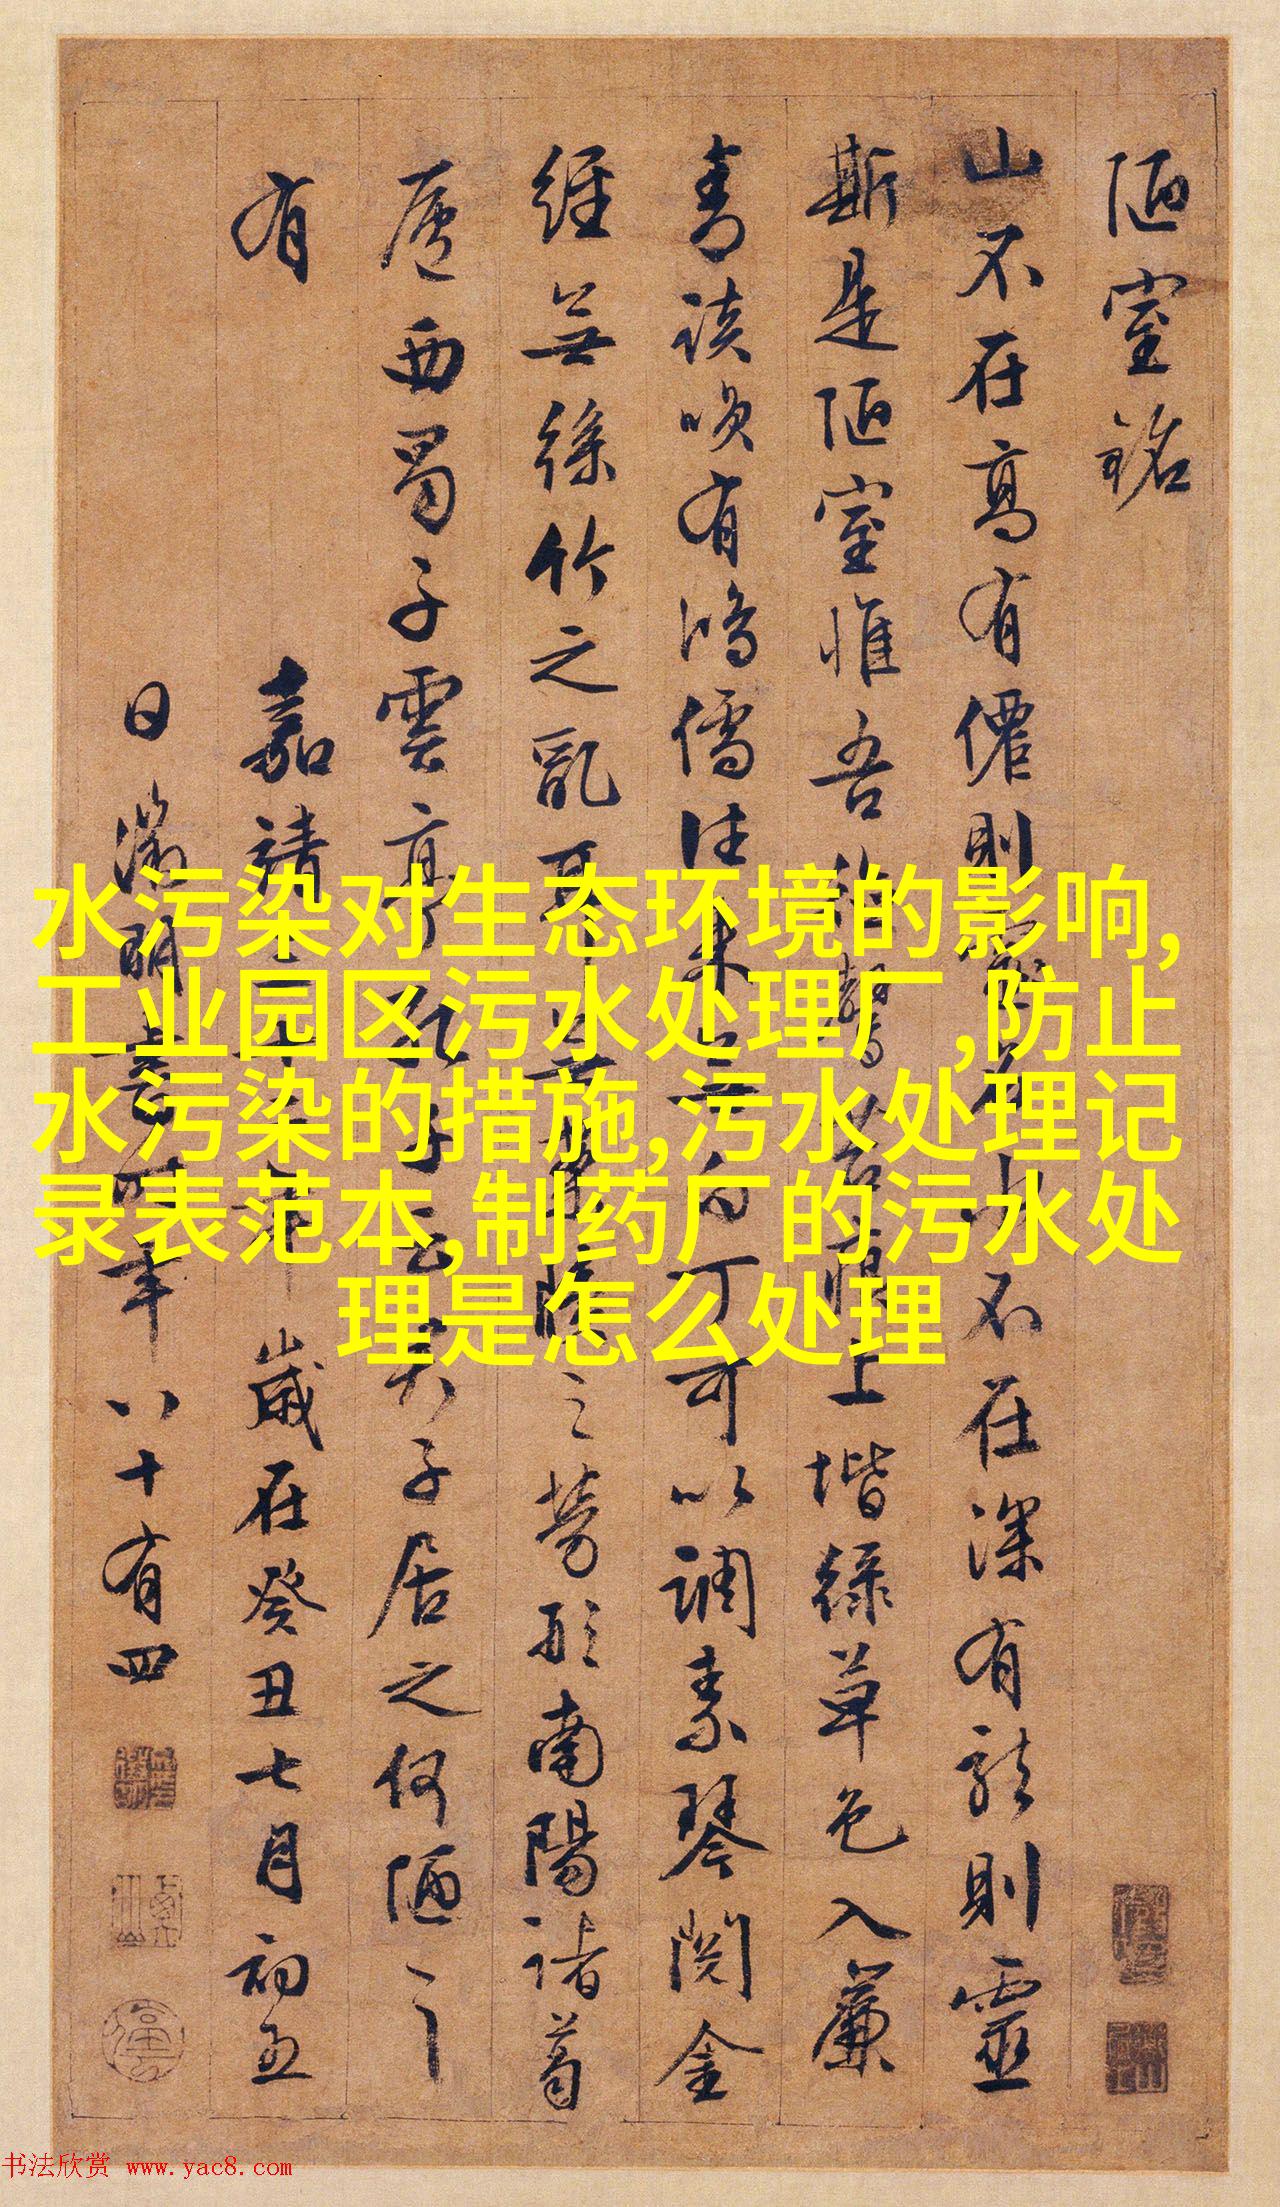 陋室銘
山不在高有僊則名水不在深有龍則靈
斯是陋室惟吾德馨苔痕上堦緑草色入簾
青談咲有鴻儒往來無白丁可以調素琴閱金
經無絲竹之亂耳無案牘之勞形南陽諸葛
廬西蜀子雲亭孔子云君子居之何陋之
有 嘉靖 歲在癸丑七月初五
日 徵明書時年八十有四
水污染对生态环境的影响,
工业园区污水处理厂,防止
水污染的措施,污水处理记
录表范本,制药厂的污水处
理是怎么处理
书法欣赏 www.yac8.com